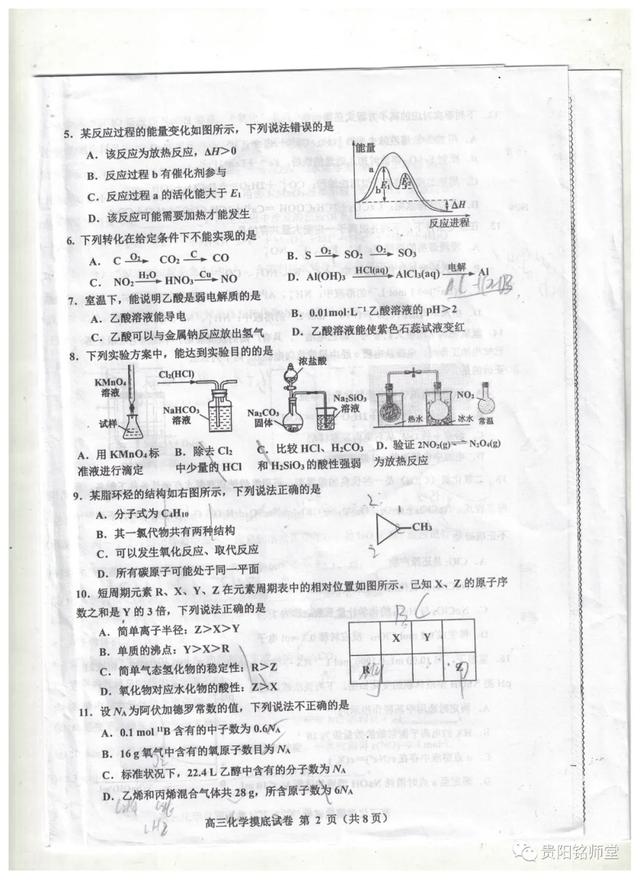 5. 某反应过程的能量变化如图所示，下列说法错误的是
A. 该反应为放热反应，ΔH>0
B. 反应过程 b 有催化剂参与
C. 反应过程 a 的活化能大于 E₁
D. 该反应可能需要加热才能发生
能量
a
b
E₁
E₂
ΔH
反应进程
6. 下列转化在给定条件下不能实现的是
A. C —O₂→ CO₂ —C→ CO
B. S —O₂→ SO₂ —O₂→ SO₃
C. NO₂ —H₂O→ HNO₃ —Cu→ NO
D. Al(OH)₃ —HCl(aq)→ AlCl₃(aq) —电解→ Al
7. 室温下，能说明乙酸是弱电解质的是
A. 乙酸溶液能导电
B. 0.01mol·L⁻¹ 乙酸溶液的 pH＞2
C. 乙酸可以与金属钠反应放出氢气
D. 乙酸溶液能使紫色石蕊试液变红
8. 下列实验方案中，能达到实验目的的是
KMnO₄
溶液
试样
Cl₂(HCl)
NaHCO₃
溶液
浓盐酸
Na₂CO₃
固体
Na₂SiO₃
溶液
NO₂
热水
冰水
常温
A. 用 KMnO₄ 标
准液进行滴定
B. 除去 Cl₂
中少量的 HCl
C. 比较 HCl、H₂CO₃
和 H₂SiO₃ 的酸性强弱
D. 验证 2NO₂(g)⇌N₂O₄(g)
为放热反应
9. 某脂环烃的结构如右图所示，下列说法正确的是
A. 分子式为 C₄H₁₀
B. 其一氯代物共有两种结构
C. 可以发生氧化反应、取代反应
D. 所有碳原子可能处于同一平面
CH₃
10. 短周期元素 R、X、Y、Z 在元素周期表中的相对位置如图所示。已知 X、Z 的原子序
数之和是 Y 的 3 倍，下列说法正确的是
A. 简单离子半径：Z>X>Y
B. 单质的沸点：Y>X>R
C. 简单气态氢化物的稳定性：R>Z
D. 氧化物对应水化物的酸性：Z>X
X
Y
R
Z
11. 设 Nᴀ 为阿伏加德罗常数的值，下列说法不正确的是
A. 0.1 mol ¹¹B 含有的中子数为 0.6Nᴀ
B. 16 g 氧气中含有的氧原子数目为 Nᴀ
C. 标准状况下，22.4 L 乙醇中含有的分子数为 Nᴀ
D. 乙烯和丙烯混合气体共 28 g，所含原子数为 6Nᴀ
高三化学摸底试卷 第 2 页（共 8 页）
贵阳铭师堂